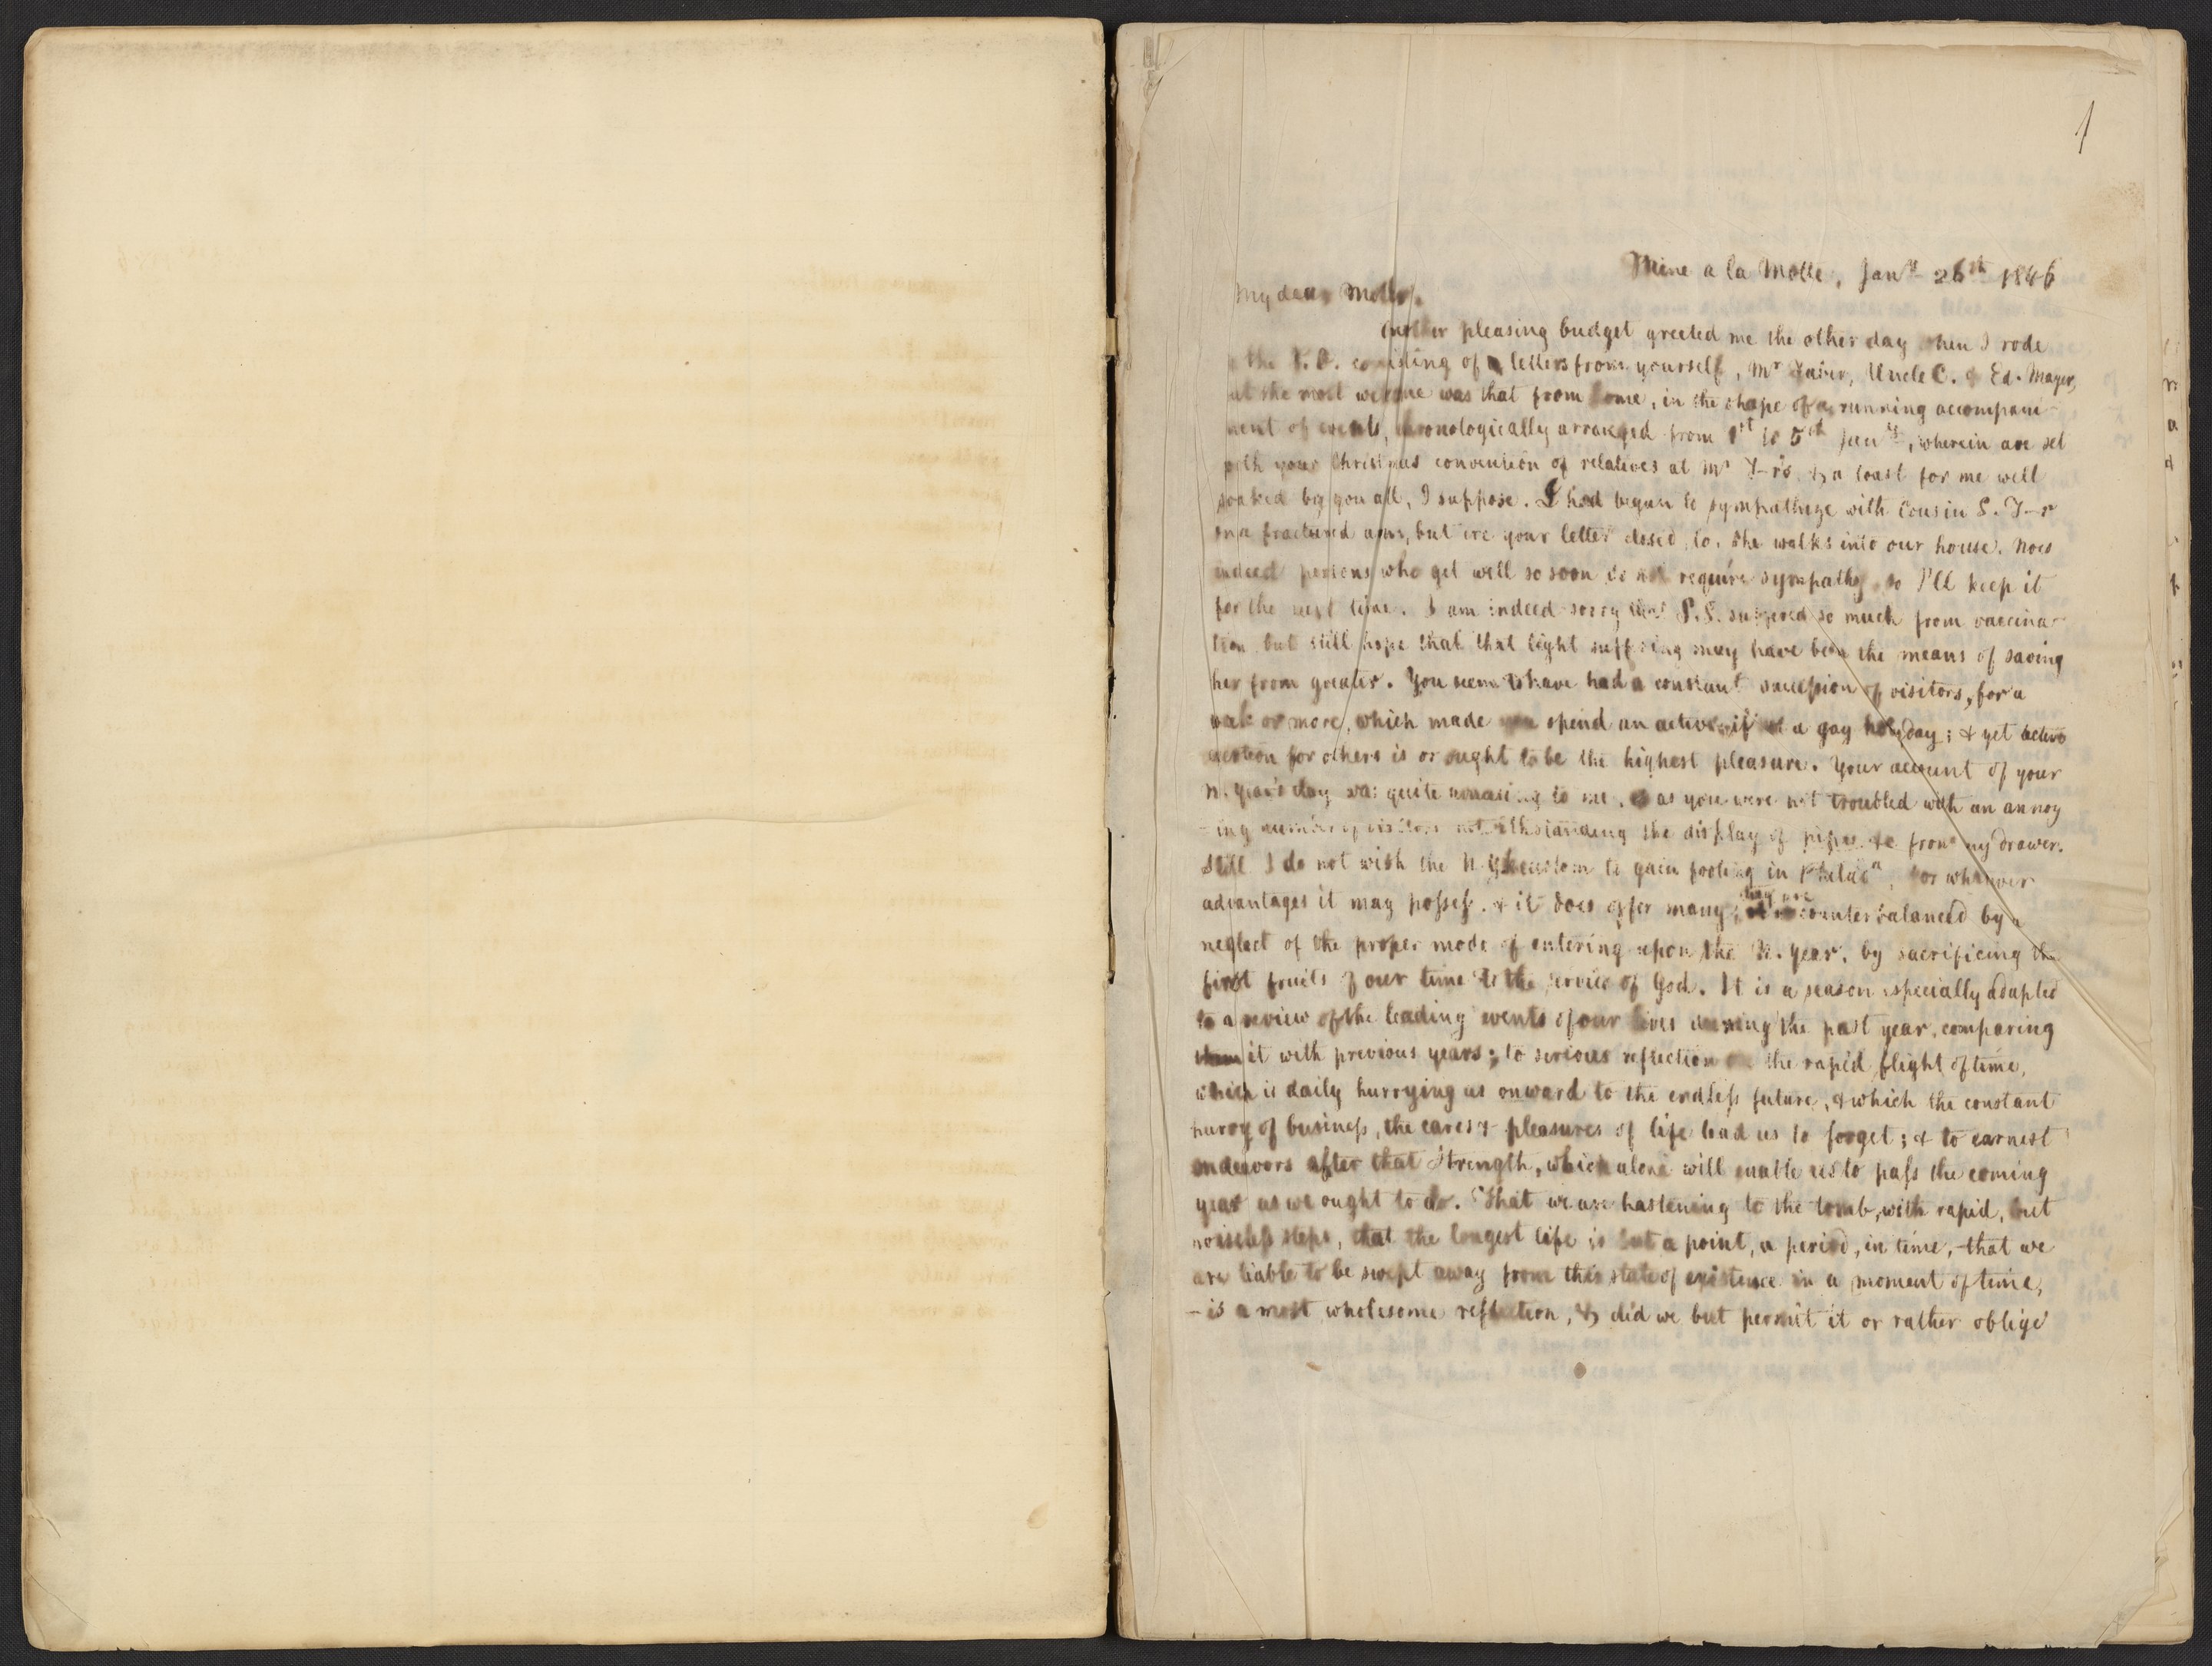 1
Mine a la Motte, Jany 26th 1846
My dear Mother.
Another pleasing budget greeted me the other day when I rode
the P.O. consisting of letters from yourself, Mr Uncle C. & Ed. Mayer,
but the most welcome was that from home, in the shape of a running accompani-
ment of events, chronologically arranged from 1st to 5th Jany, wherein are set
forth your Christmas convention of relatives at Mr Y-r's, & a toast for me well
soaked by you all, I suppose. I had begun to sympathize with Cousin S. Y-r
on a fractured arm, but ere your letter closed, lo, she walks into our house. Now
indeed persons who get well so soon do not require sympathy so I'll keep it
for the next time. I am indeed sorry that P.S. suffered so much from vaccina-
tion but still hope that that light suffering may have been the means of saving
her from greater. You seem to have had a constant succession of visitors, for a
week or more, which made you spend an active if not a gay holyday; & yet active
exertion for others is or ought to be the highest pleasure. Your account of your
N. Year's day was quite amusing to me, as you were not troubled with an annoy
-ing number of visitors notwithstanding the display of pipes &c from my drawer.
Still I do not wish the N.Y. custom to gain footing in Philada, for whatever
advantages it may possess, & it does offer many, they are counterbalanced by a
neglect of the proper mode of entering upon the N. Year, by sacrificing the
first fruits of our time to the service of God. It is a season especially adapted
to a review of the leading events of our lives during the past year, comparing
them it with previous years; to serious reflection on the rapid flight of time,
which is daily hurrying us onward to the endless future, & which the constant
hurry of business, the cares & pleasures of life lead us to forget; & to earnest
endeavors after that strength, which alone will enable us to pass the coming
year as we ought to do. That we are hastening to the tomb, with rapid, but
noiseless steps, that the longest life is but a point, a period, in time, - that we
are liable to be swept away from this state of existence in a moment of time,
- is a most wholesome reflection, & did we but permit it or rather oblige